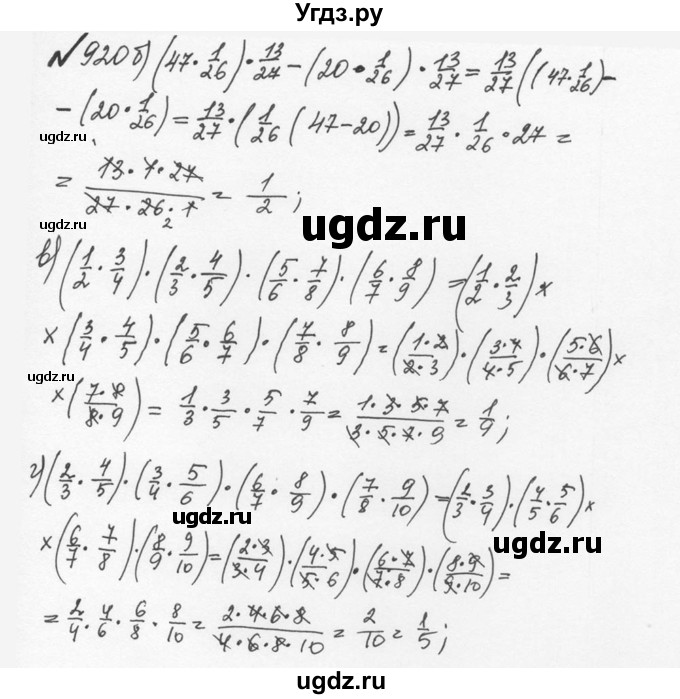 Угдз.ру
№920 б) (47 · 1/26) · 13/27 − (20 · 1/26) · 13/27 = 13/27 ((47 · 1/26) −
− (20 · 1/26) = 13/27 · (1/26 (47 − 20)) = 13/27 · 1/26 · 27 =
ugdz.ru
ugdz.ru
= (13 · 1 · 27)/(27 · 26 · 1) 2 = 1/2 ;
ugdz.ru
ugdz.ru
в) (1/2 · 3/4) · (2/3 · 4/5) · (5/6 · 7/8) · (6/7 · 8/9) = (1/2 · 2/3) ×
× (3/4 · 4/5) · (5/6 · 6/7) · (7/8 · 8/9) = (1·2/2·3) · (3·4/4·5) · (5·6/6·7) ×
ugdz.ru
× (7·8/8·9) = 1/3 · 3/5 · 5/7 · 7/9 = (1·3·5·7)/(3·5·7·9) = 1/9 ;
г) (2/3 · 4/5) · (3/4 · 5/6) · (6/7 · 8/9) · (7/8 · 9/10) = (2/3 · 3/4) · (4/5 · 5/6) ×
ugdz.ru
ugdz.ru
× (6/7 · 7/8) · (8/9 · 9/10) = (2·3/3·4) · (4·5/5·6) · (6·7/7·8) · (8·9/9·10) =
= 2/4 · 4/6 · 6/8 · 8/10 = (2·4·6·8)/(4·6·8·10) = 2/10 = 1/5 ;
ugdz.ru
ugdz.ru